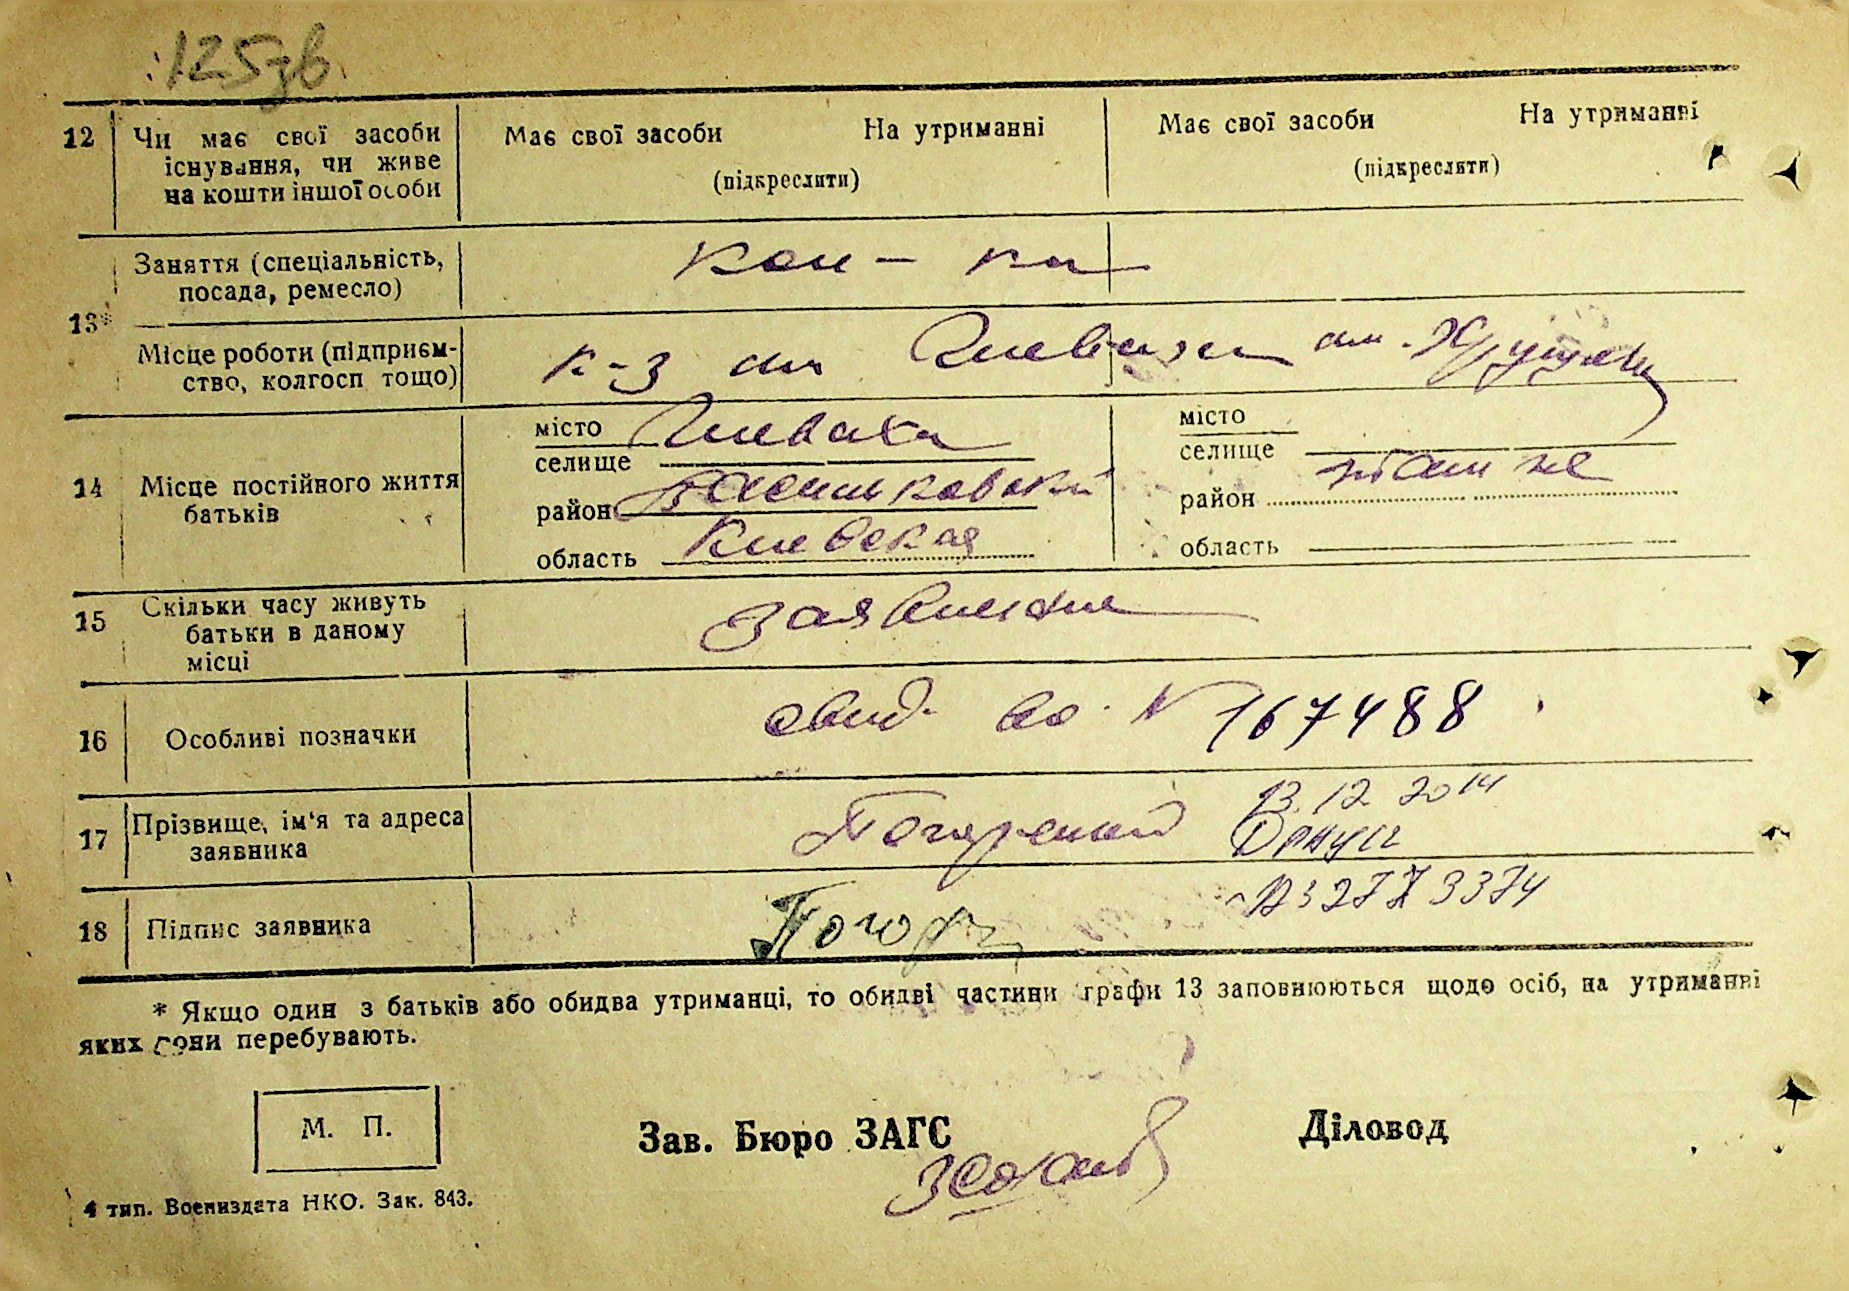 125зв
12 Чи має свої засоби існування, чи живе на кошти іншої особи
Має свої засоби На утриманні
(підкреслити)
Має свої засоби На утриманні
(підкреслити)
13* Заняття (спеціальність, посада, ремесло)
Кол-ка
Місце роботи (підприємство, колгосп тощо)
к-з им
14 Місце постійного життя батьків
місто
селище
Глеваха
район Васильковский
область Киевская
місто
селище
район
область
там же
15 Скільки часу живуть батьки в даному місці
16 Особливі позначки
свид. N 167488
17 Прізвище, ім'я та адреса заявника
13.12.2014
18 Підпис заявника
* Якщо один з батьків або обидва утриманці, то обидві частини графи 13 заповнюються щодо осіб, на утриманні
яких вони перебувають.
М. П.
Зав. Бюро ЗАГС
Діловод
4 тип. Воениздата НКО. Зак. 843.